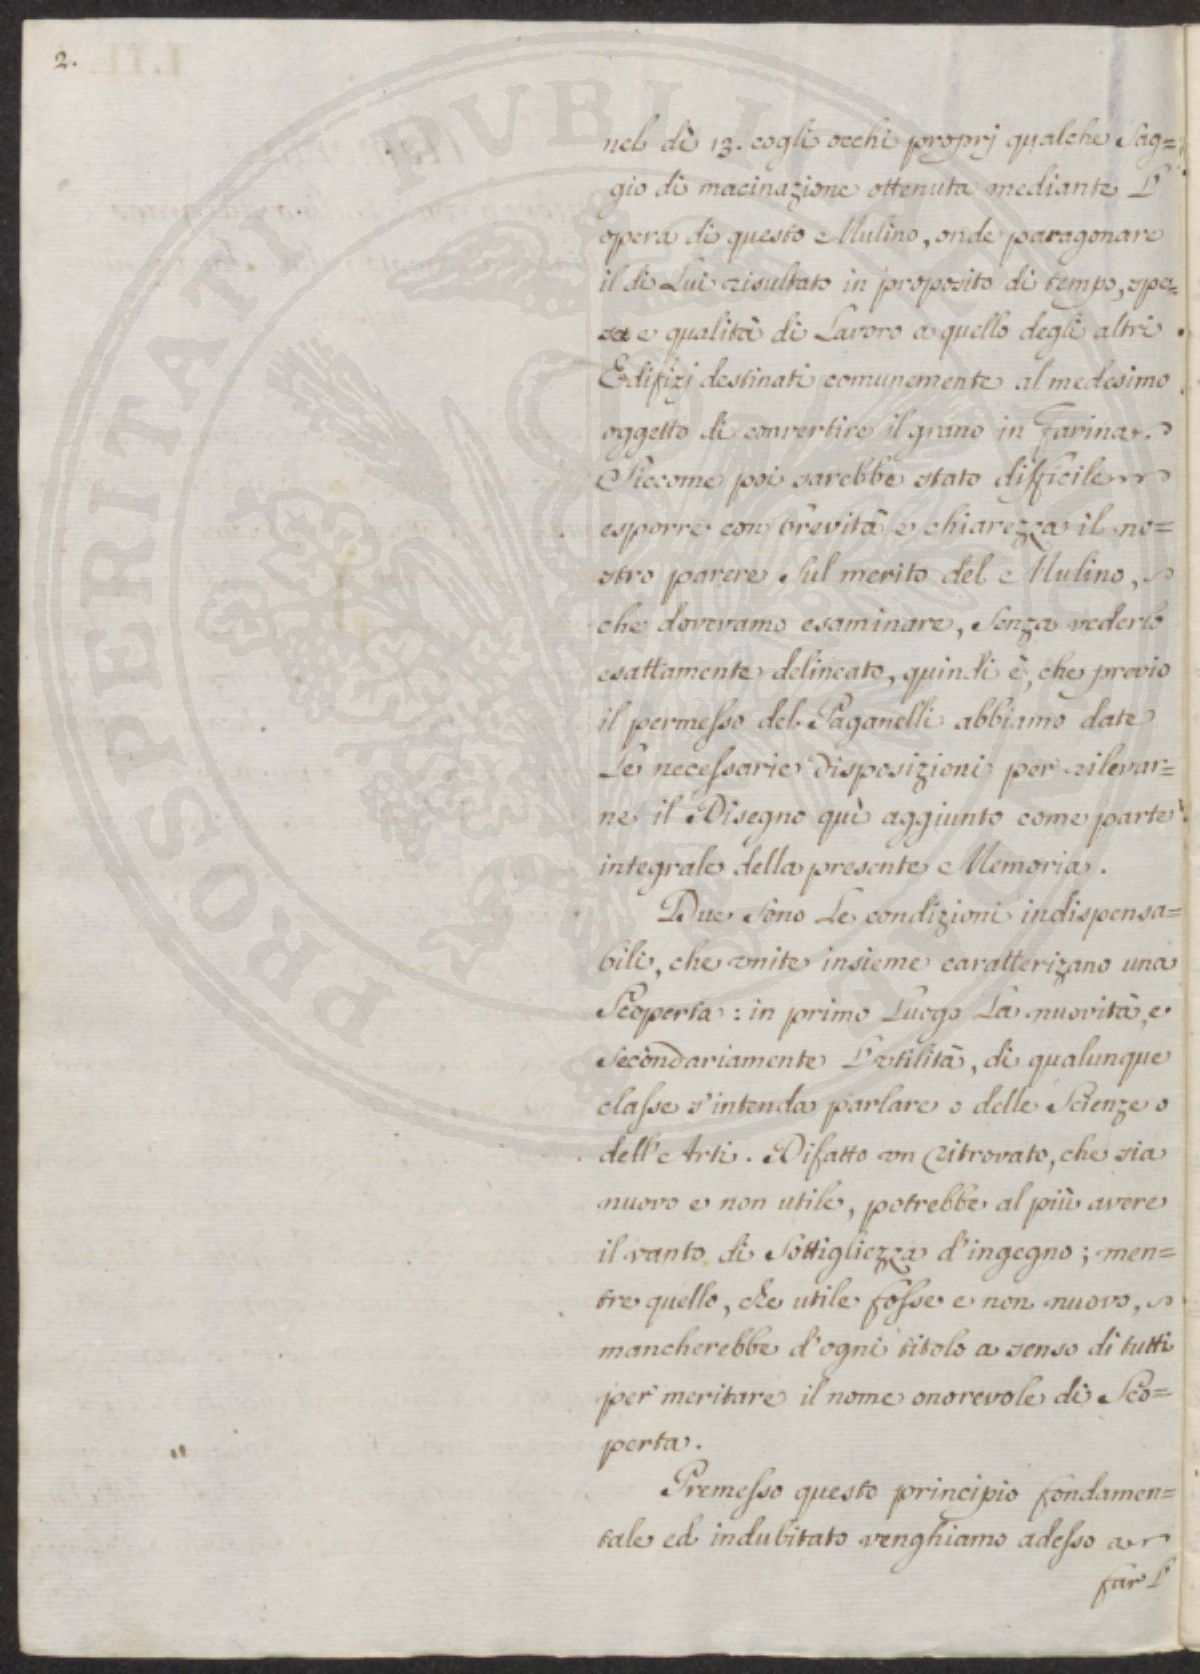 2.
nel dì 13. cogli occhi proprj qualche Sag=
gio di macinazione ottenuta mediante L'
opera di questo Mulino, onde paragonare
il di Lui risultato in proposito di tempo, spe=
sa e qualità di Lavoro a quello degli altri
Edifizj destinati comunemente al medesimo
oggetto di convertire il grano in farina.
Siccome poi sarebbe stato difficile
esporre con brevità e chiarezza il no=
stro parere sul merito del Mulino,
che dovevamo esaminare, senza vederlo
esattamente delineato, quindi è, che previo
il permesso del Paganelli abbiamo date
Le necessarie disposizioni per rilevar=
ne il Disegno quì aggiunto come parte
integrale della presente Memoria.
Due sono Le condizioni indispensa=
bili, che unite insieme caratterizano una
Scoperta: in primo Luogo La nuovità, e
secondariamente L'utilità, di qualunque
classe s'intenda parlare o delle Scienze o
dell'Arti. Difatto un ritrovato, che sia
nuovo e non utile, potrebbe al più avere
il vanto di sottigliezza d'ingegno; men=
tre quello, che utile fosse e non nuovo,
mancherebbe d'ogni titolo a senso di tutti
per meritare il nome onorevole di Sco=
perta.
Premesso questo principio fondamen=
tale ed indubitato venghiamo adesso a
far L'
PROSPERITATI PVBLICAE AVGENDAE